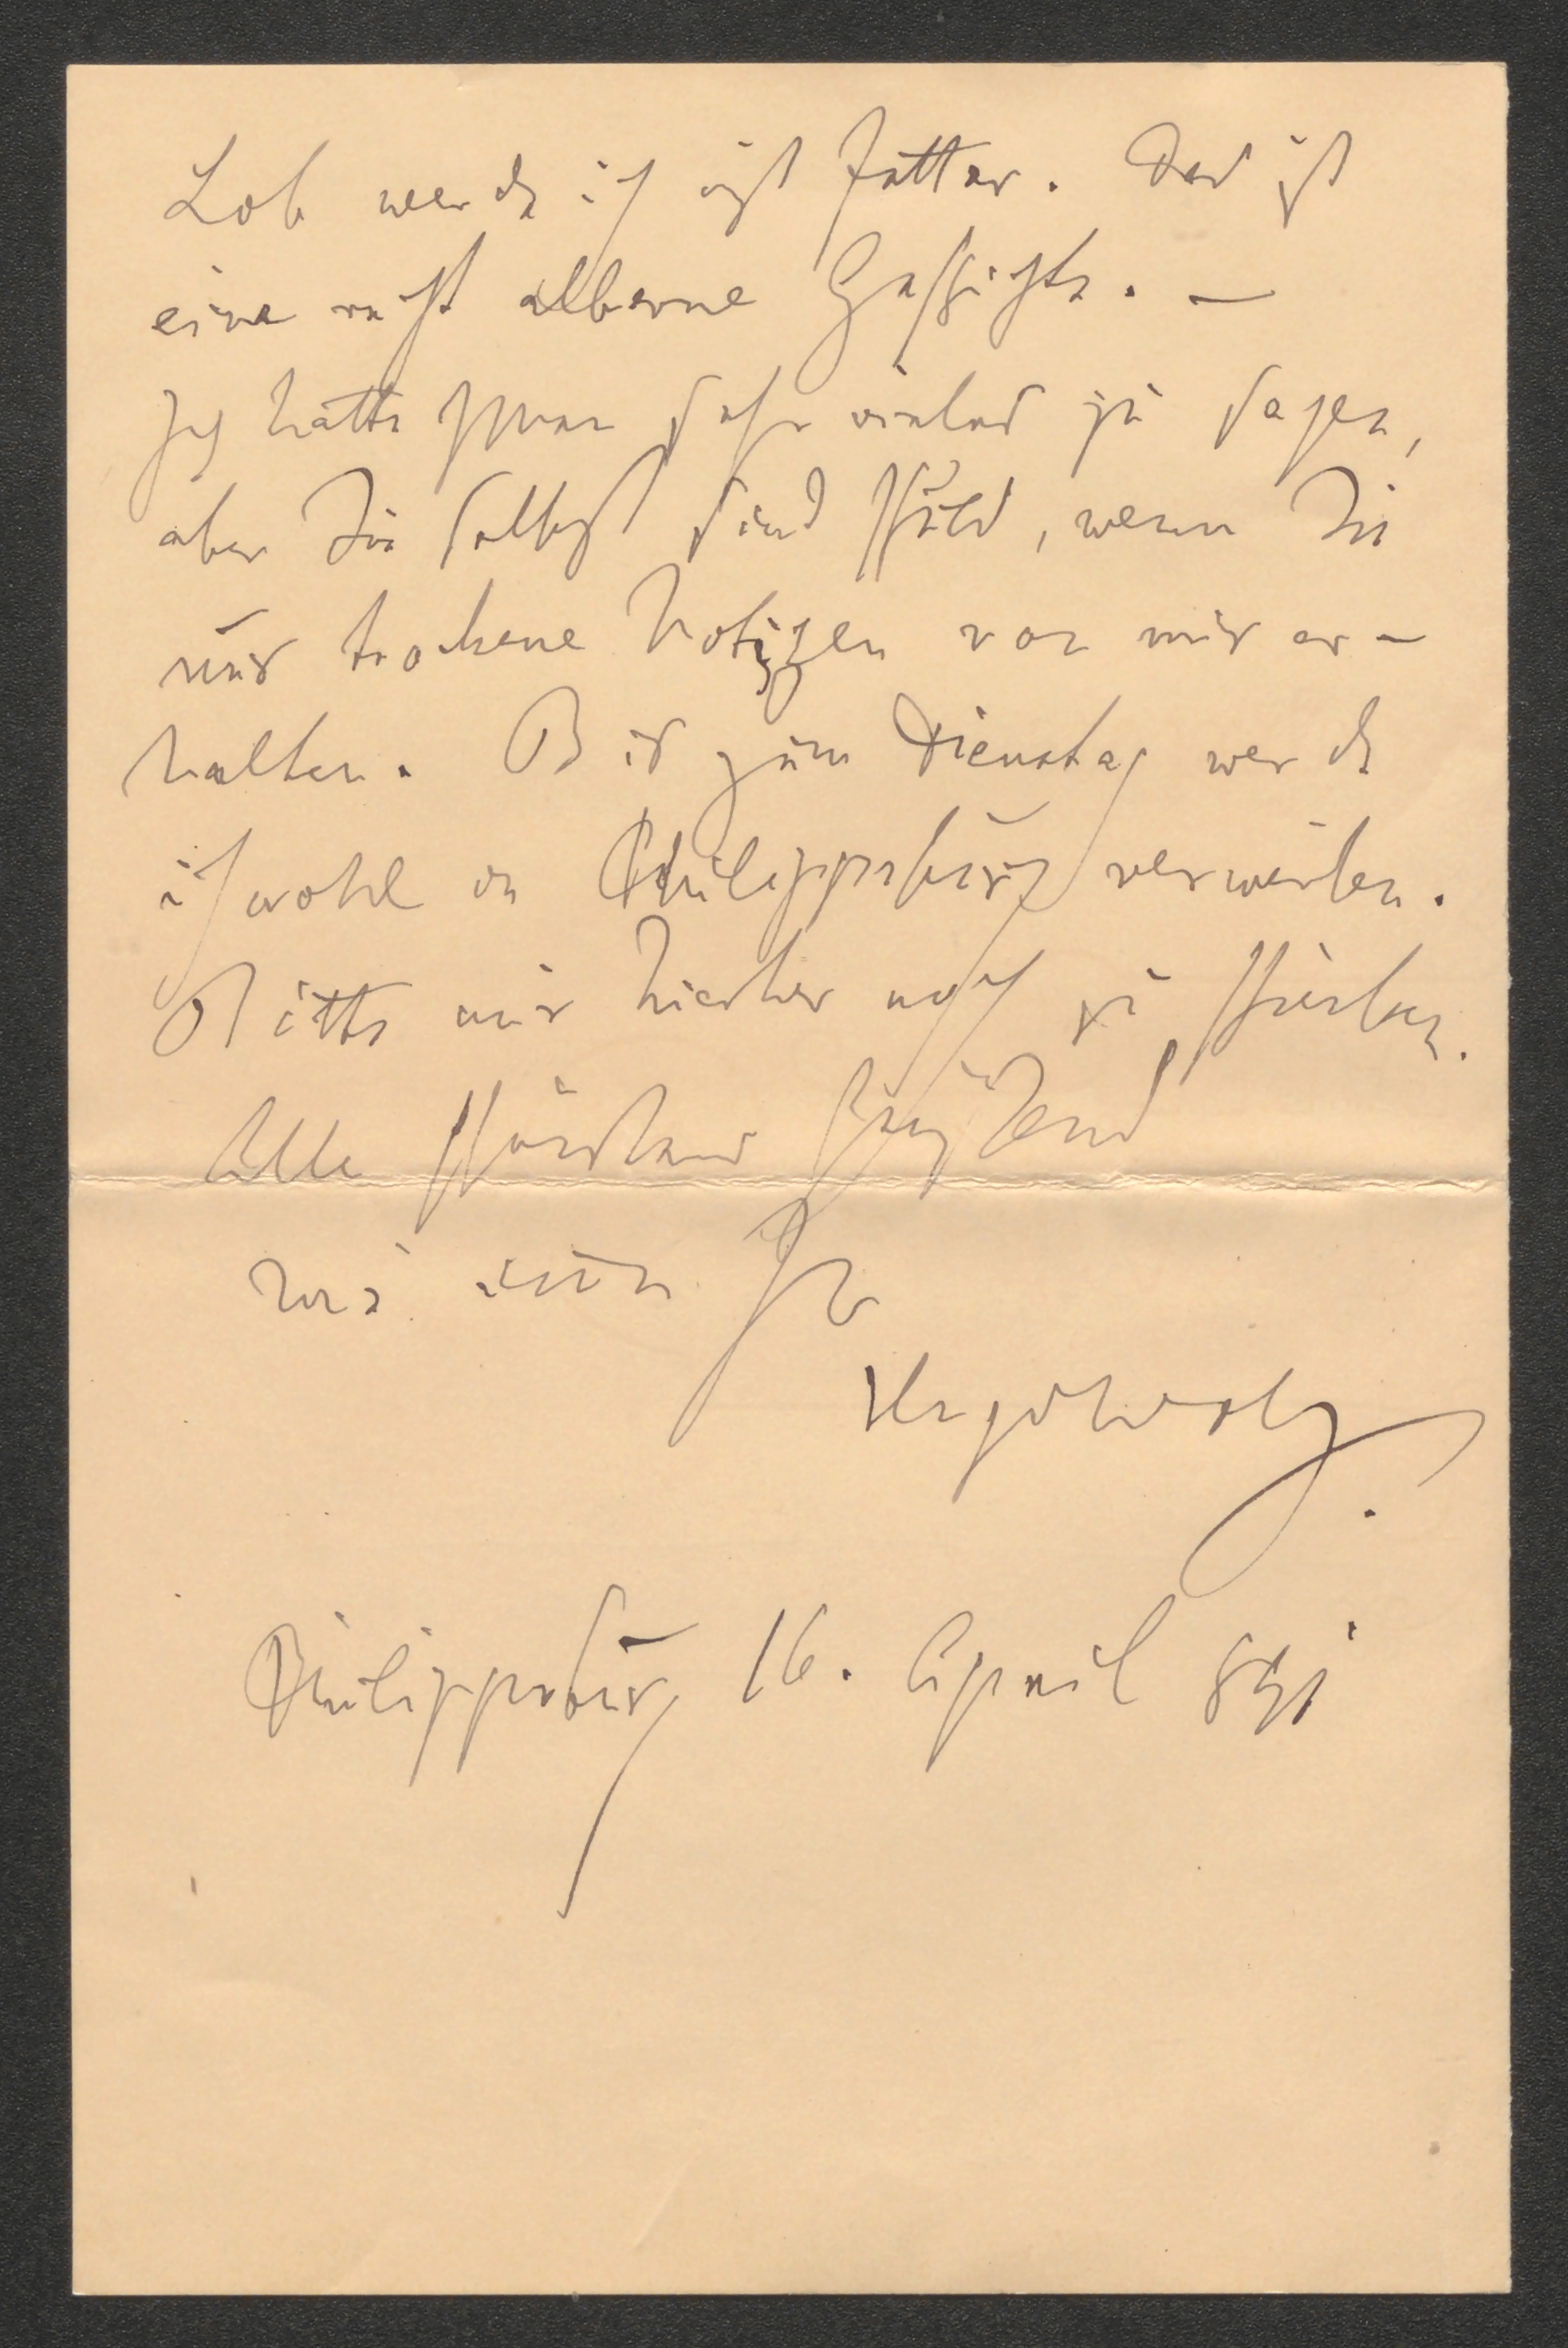 Lob werde ich nicht fetter. Das ist
eine recht alberne Geschichte. –
Ich hätte zwar sehr vieles zu sagen,
aber Sie selbst sind schuld, wenn Sie
nur trockene Notizen von mir er-
halten. Bis zum Dienstag werde
ich wohl in Philippsburg verweilen.
Bitte mir hierher noch zu schreiben.
Alle schönstens grüßend
Ihr
Hugo Wolf.
Philippsburg 16. April 891